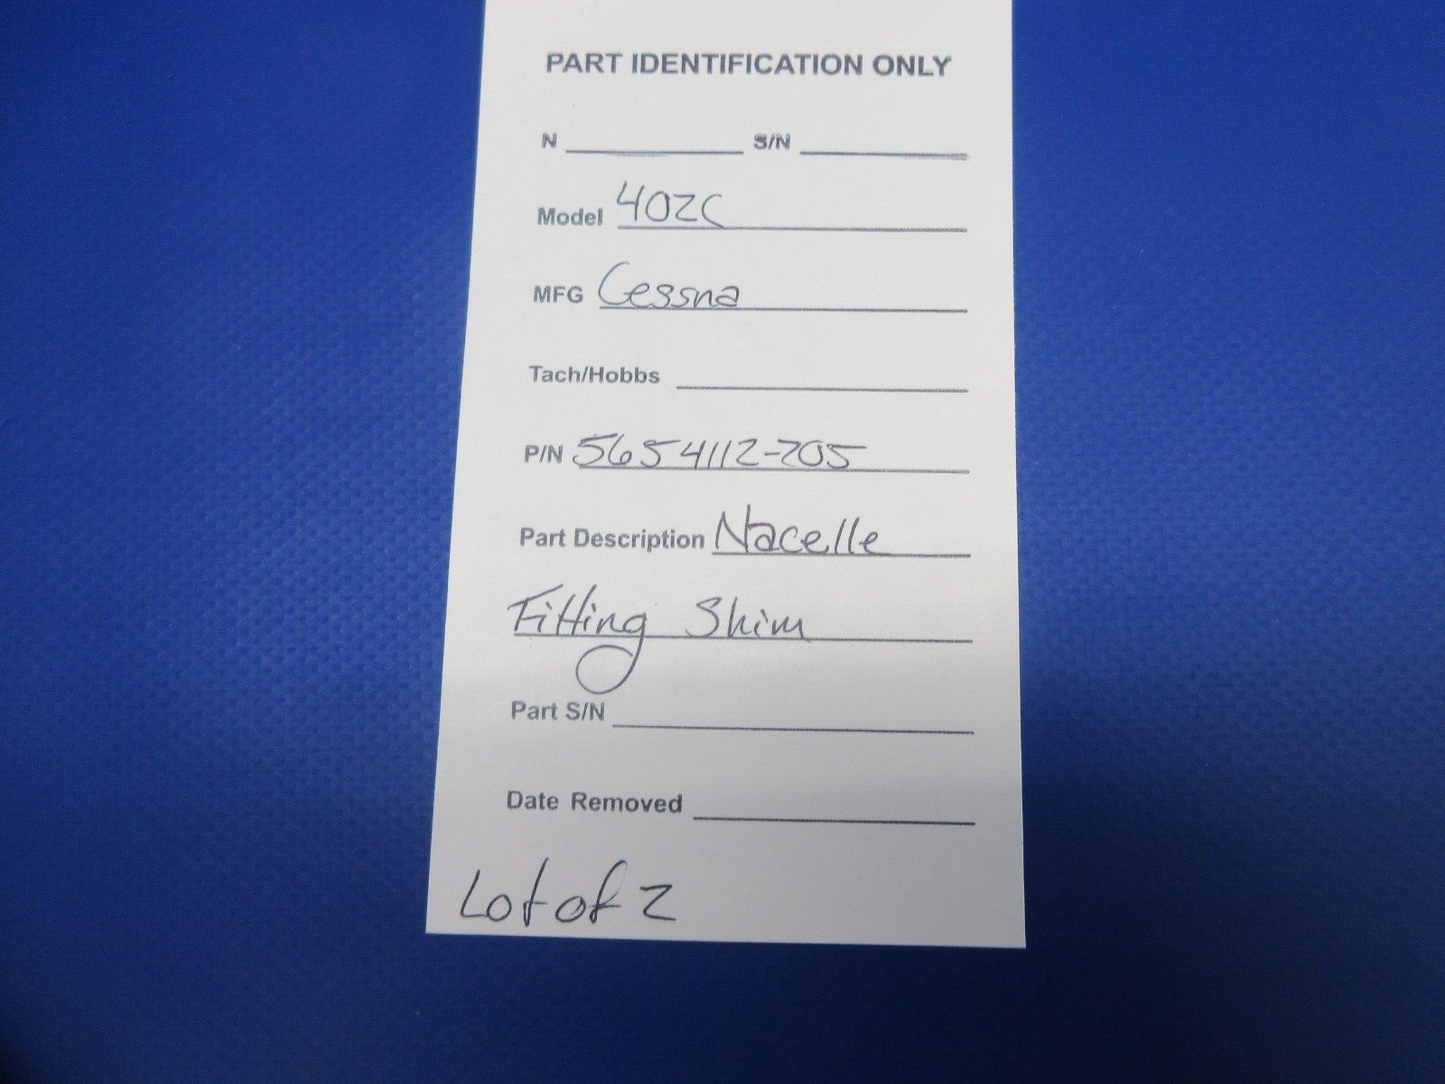 PART IDENTIFICATION ONLY
N S/N
Model 402C
MFG Cessna
Tach/Hobbs
P/N 5654112-205
Part Description Nacelle
Fitting Shim
Part S/N
Date Removed
Lot of 2